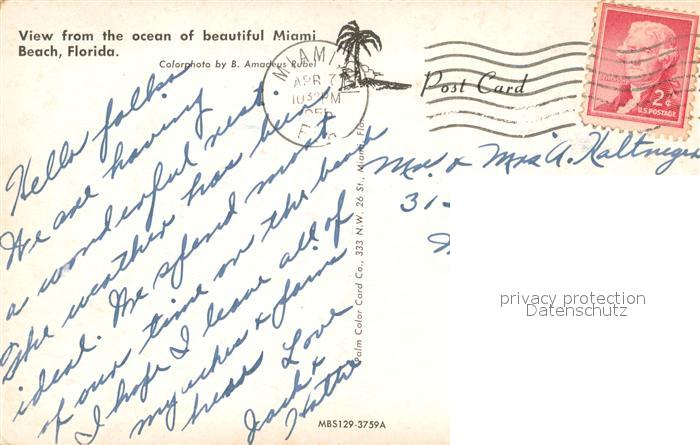 View from the ocean of beautiful Miami
Beach, Florida.
Colorphoto by B. Amadeus Rubel
MIAMI
APR 7
10 30 PM
Post Card
2¢
U.S. POSTAGE
Hello folks
We are having
a wonderful rest.
The weather has been
ideal. We spend most
of our time on the beach
I hope I leave all of
my aches & pains
here Love
Jack &
Hattie
Mr. & Mrs A.
31
Palm Color Card Co., 333 N.W. 26 St., Miami, Fla.
MBS129-3759A
privacy protection
Datenschutz